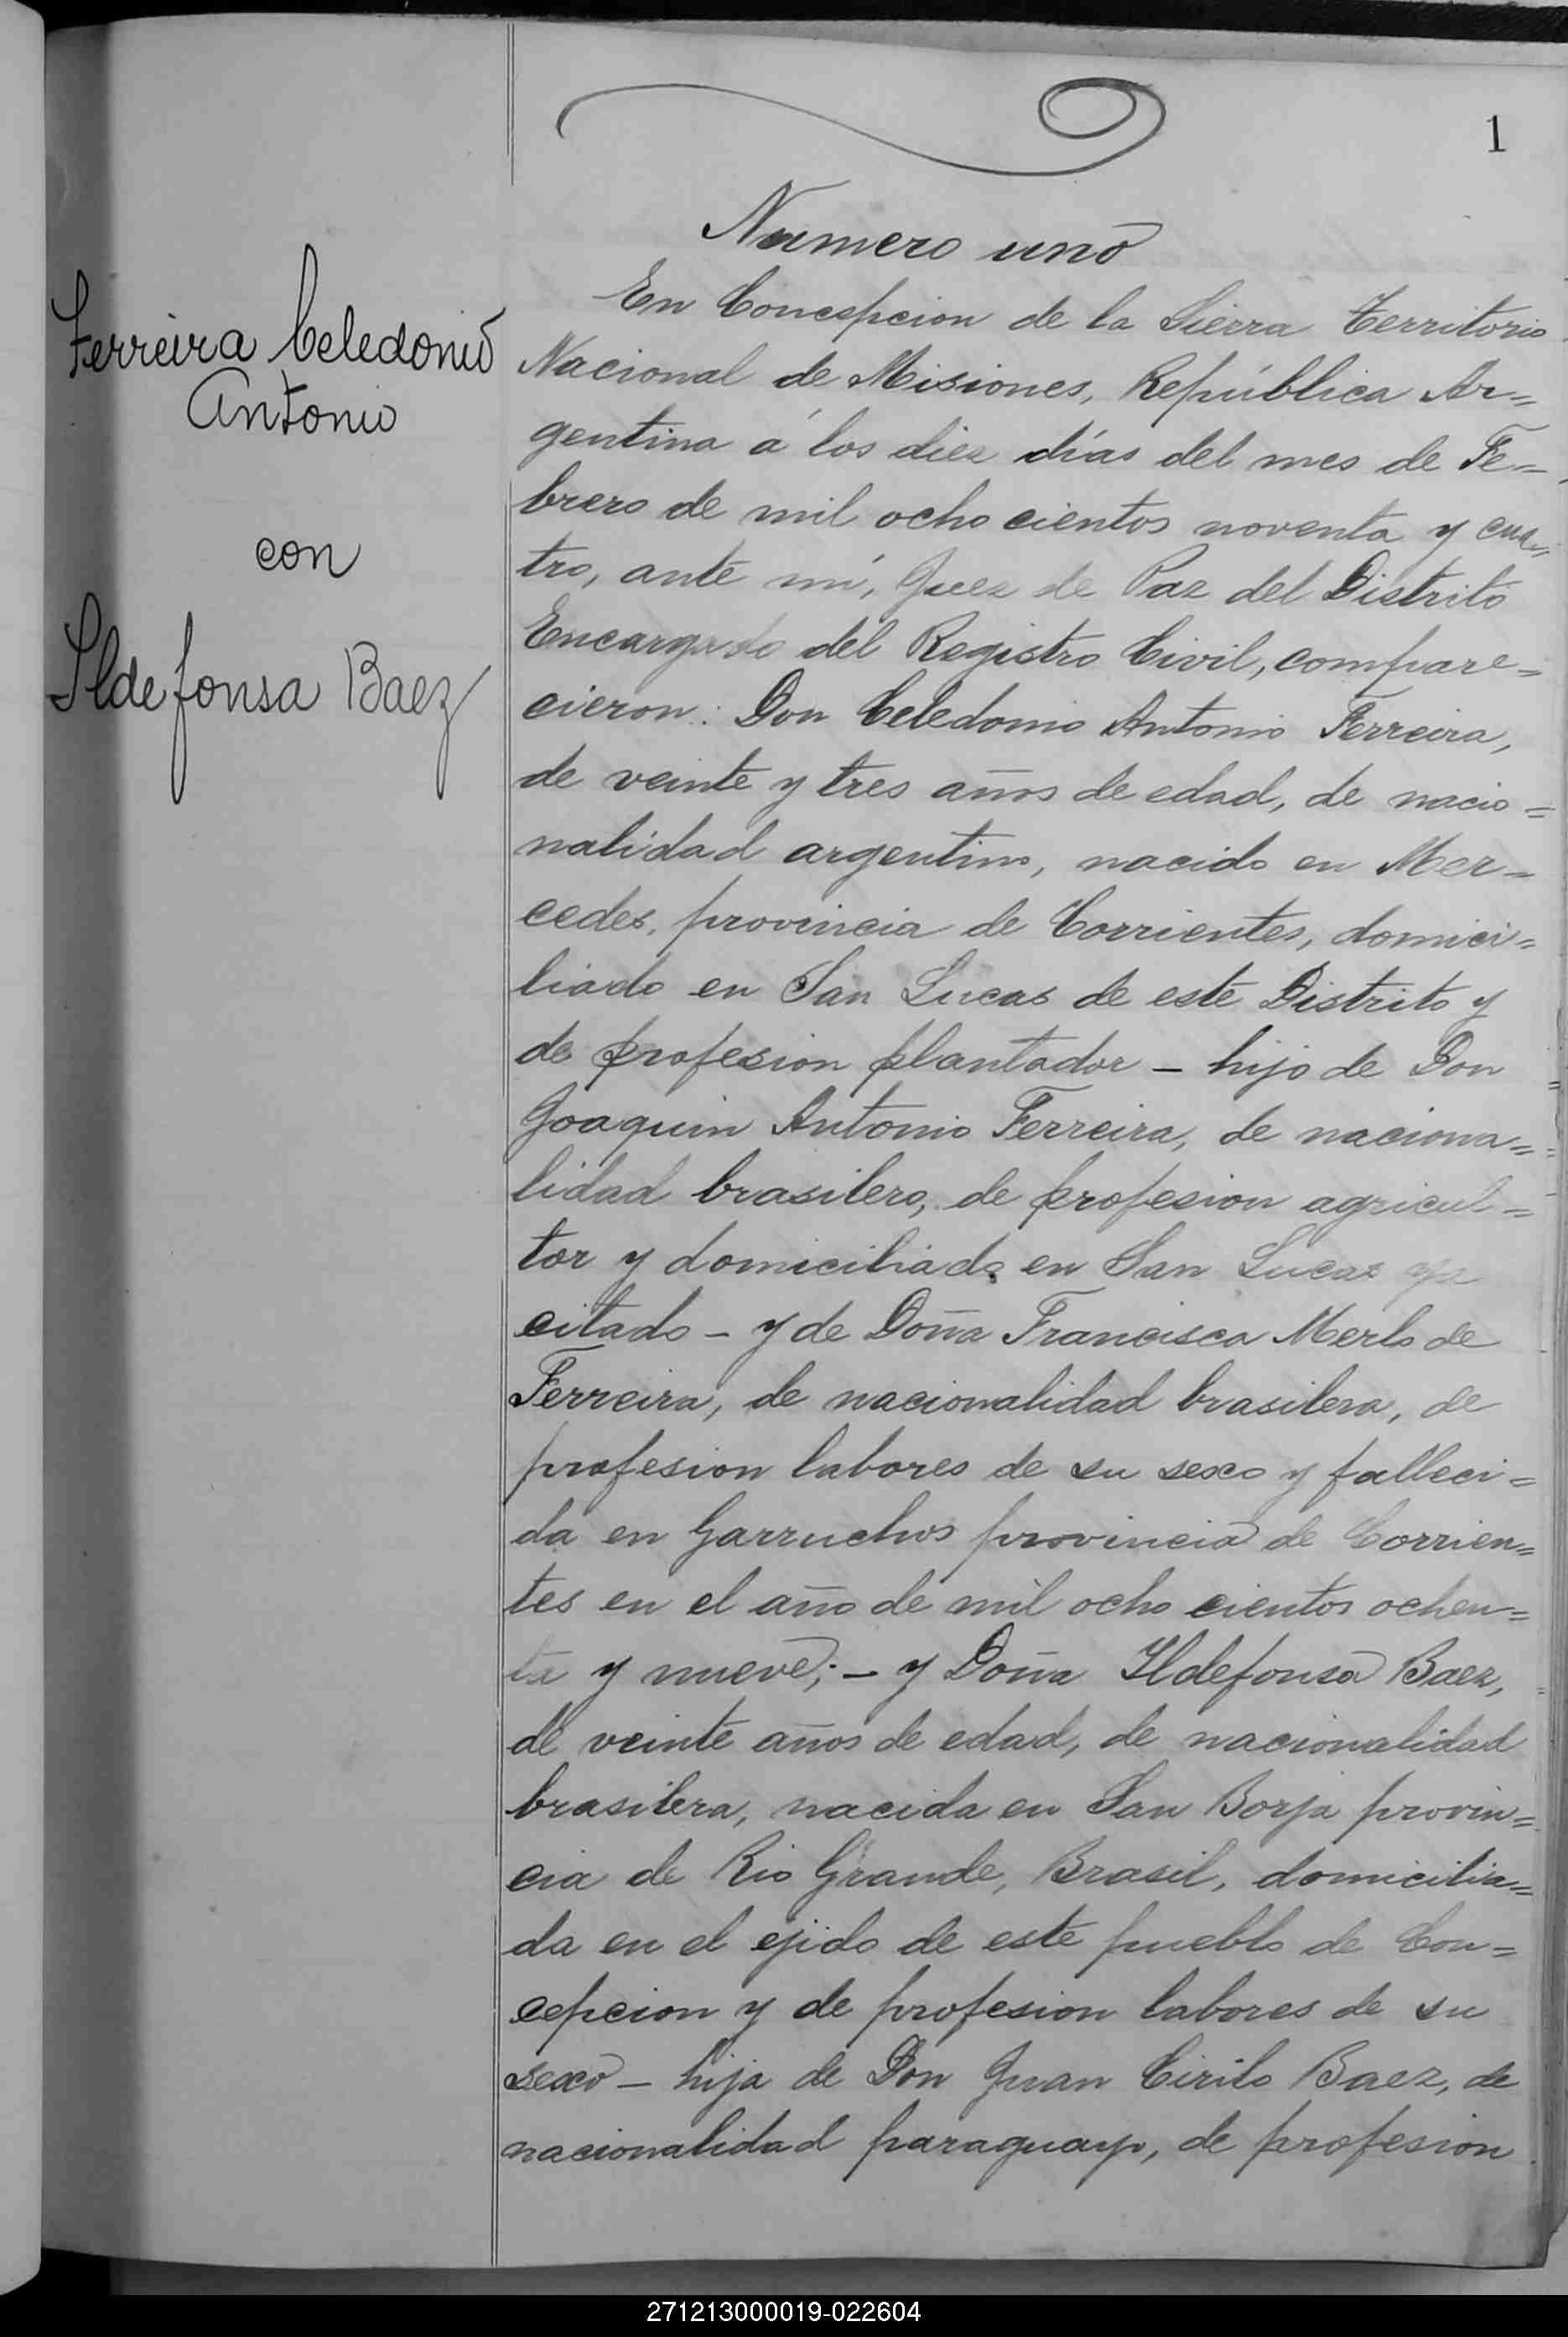 1
Numero uno
Ferreira Celedonio
Antonio
con
Ildefonsa Baez
En Concepcion de la Sierra Territorio
Nacional de Misiones, República Ar=
gentina á los diez días del mes de Fe=
brero de mil ocho cientos noventa y cua=
tro, ante mí, Juez de Paz del Distrito
Encargado del Registro Civil, compare=
cieron: Don Celedonio Antonio Ferreira,
de veinte y tres años de edad, de nacio=
nalidad argentino, nacido en Mer=
cedes, provincia de Corrientes, domici=
liado en San Lucas de este Distrito y
de profesion plantador - hijo de Don
Joaquin Antonio Ferreira, de naciona=
lidad brasilero, de profesion agricul=
tor y domiciliado en San Lucas ya
citado - y de Doña Francisca Merlo de
Ferreira, de nacionalidad brasilera, de
profesion labores de su sexo y falleci=
da en Garruchos provincia de Corrien=
tes en el año de mil ocho cientos ochen=
ta y nueve; - y Doña Ildefonsa Baez,
de veinte años de edad, de nacionalidad
brasilera, nacida en San Borja provin=
cia de Rio Grande, Brasil, domicilia=
da en el ejido de este pueblo de Con=
cepcion y de profesion labores de su
sexo - hija de Don Juan Cirilo Baez, de
nacionalidad paraguayo, de profesion
271213000019-022604